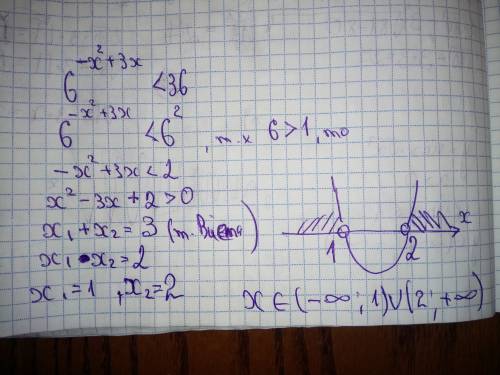 6^{-x²+3x} < 36
6^{-x²+3x} < 6², т.к 6>1, то
-x²+3x<2
x²-3x+2>0
x₁+x₂=3 (т. Виета)
x₁·x₂=2
x₁=1, x₂=2
1 2 x
x∈(-∞;1)∪(2;+∞)